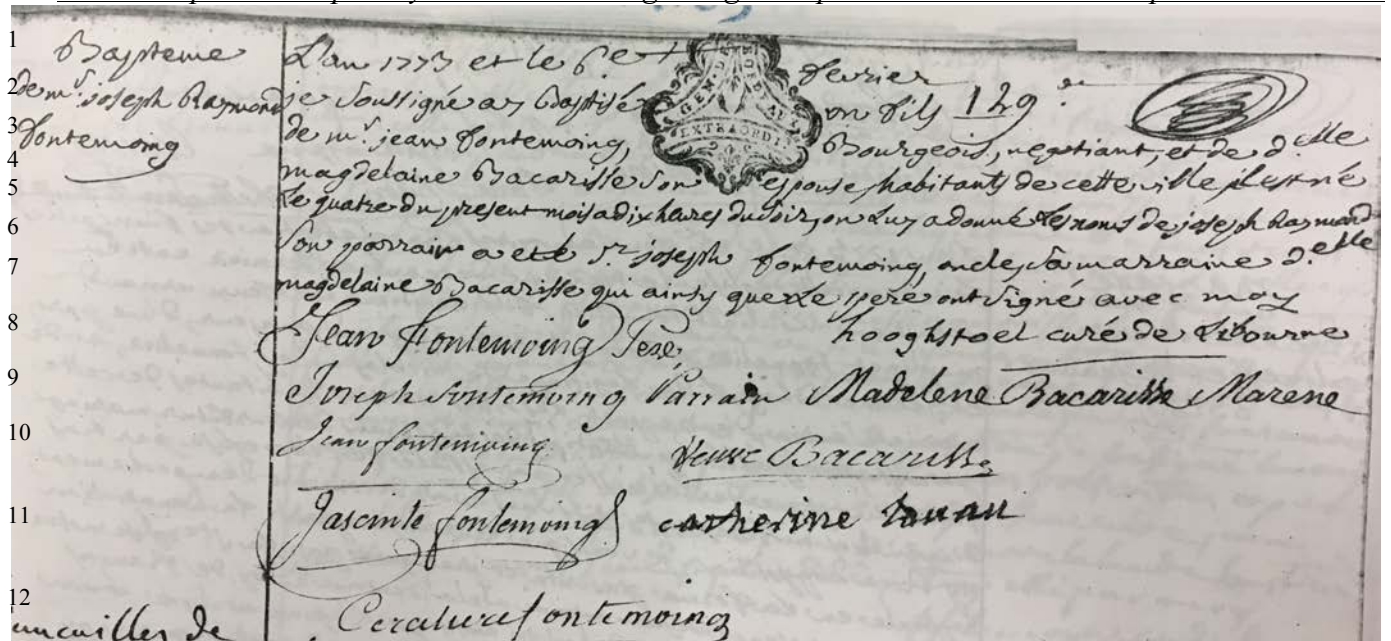 1
Bapteme
2
de mr. joseph Raymond
3
fontemoing
4
5
6
7
8
9
10
11
12
L'an 1773 et le 6e
fevrier
je soussigné ay Baptisé
un fils 129.
de mr. jean fontemoing,
Bourgeois, negotiant, et de d.elle
magdelaine Bacarisse son espouse, habitants de cette ville il est né
le quatre du present mois a dix heures du soir, on luy a donné les noms de joseph Raymond
son parrain a eté sr. joseph fontemoing, oncle, sa marraine d.elle
magdelaine Bacarisse qui ainsy que le pere ont signé avec moy
GEN. D
EXTRAORDI
Jean fontemoing Pere
hooghstoel curé de Libourne
Joseph fontemoing Parrain Madelene Bacarisse Marene
Jean fontemoing veuve Bacarisse
Jascinte fontemoing catherine
fontemoing
de